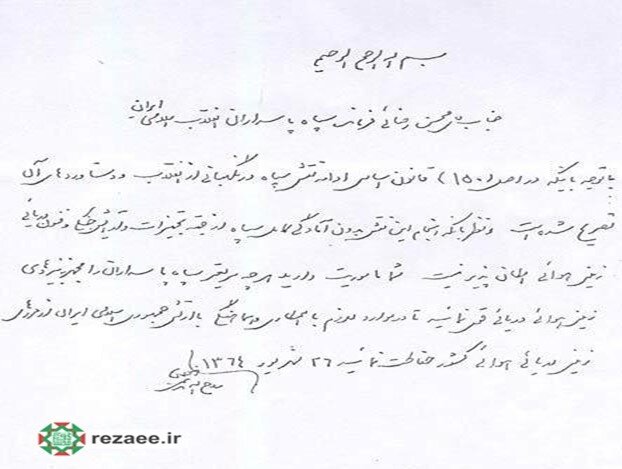 بسم الله الرحمن الرحیم
جناب آقای محسن رضائی فرمانده سپاه پاسداران انقلاب اسلامی ایران
با توجه باینکه در اصل (۱۵۰) قانون اساسی ادامه نقش سپاه در نگهبانی از انقلاب و دستاوردهای آن
تصریح شده است و نظر باینکه انجام این نقش بدون آمادگی کامل سپاه از جهت تجهیزات و آموزش جنگی و فنون دریائی
زمینی هوائی امکان پذیر نیست شما ماموریت دارید هرچه سریعتر سپاه پاسداران را مجهز به نیروی
زمینی هوائی دریائی قوی نمائید تا در موارد لزوم با همکاری و هماهنگی با ارتش جمهوری اسلامی ایران از مرزهای
زمینی دریائی هوائی کشور حفاظت نمائید ۲۶ شهریور ۱۳۶۴
روح الله الموسوی الخمینی
rezaee.ir